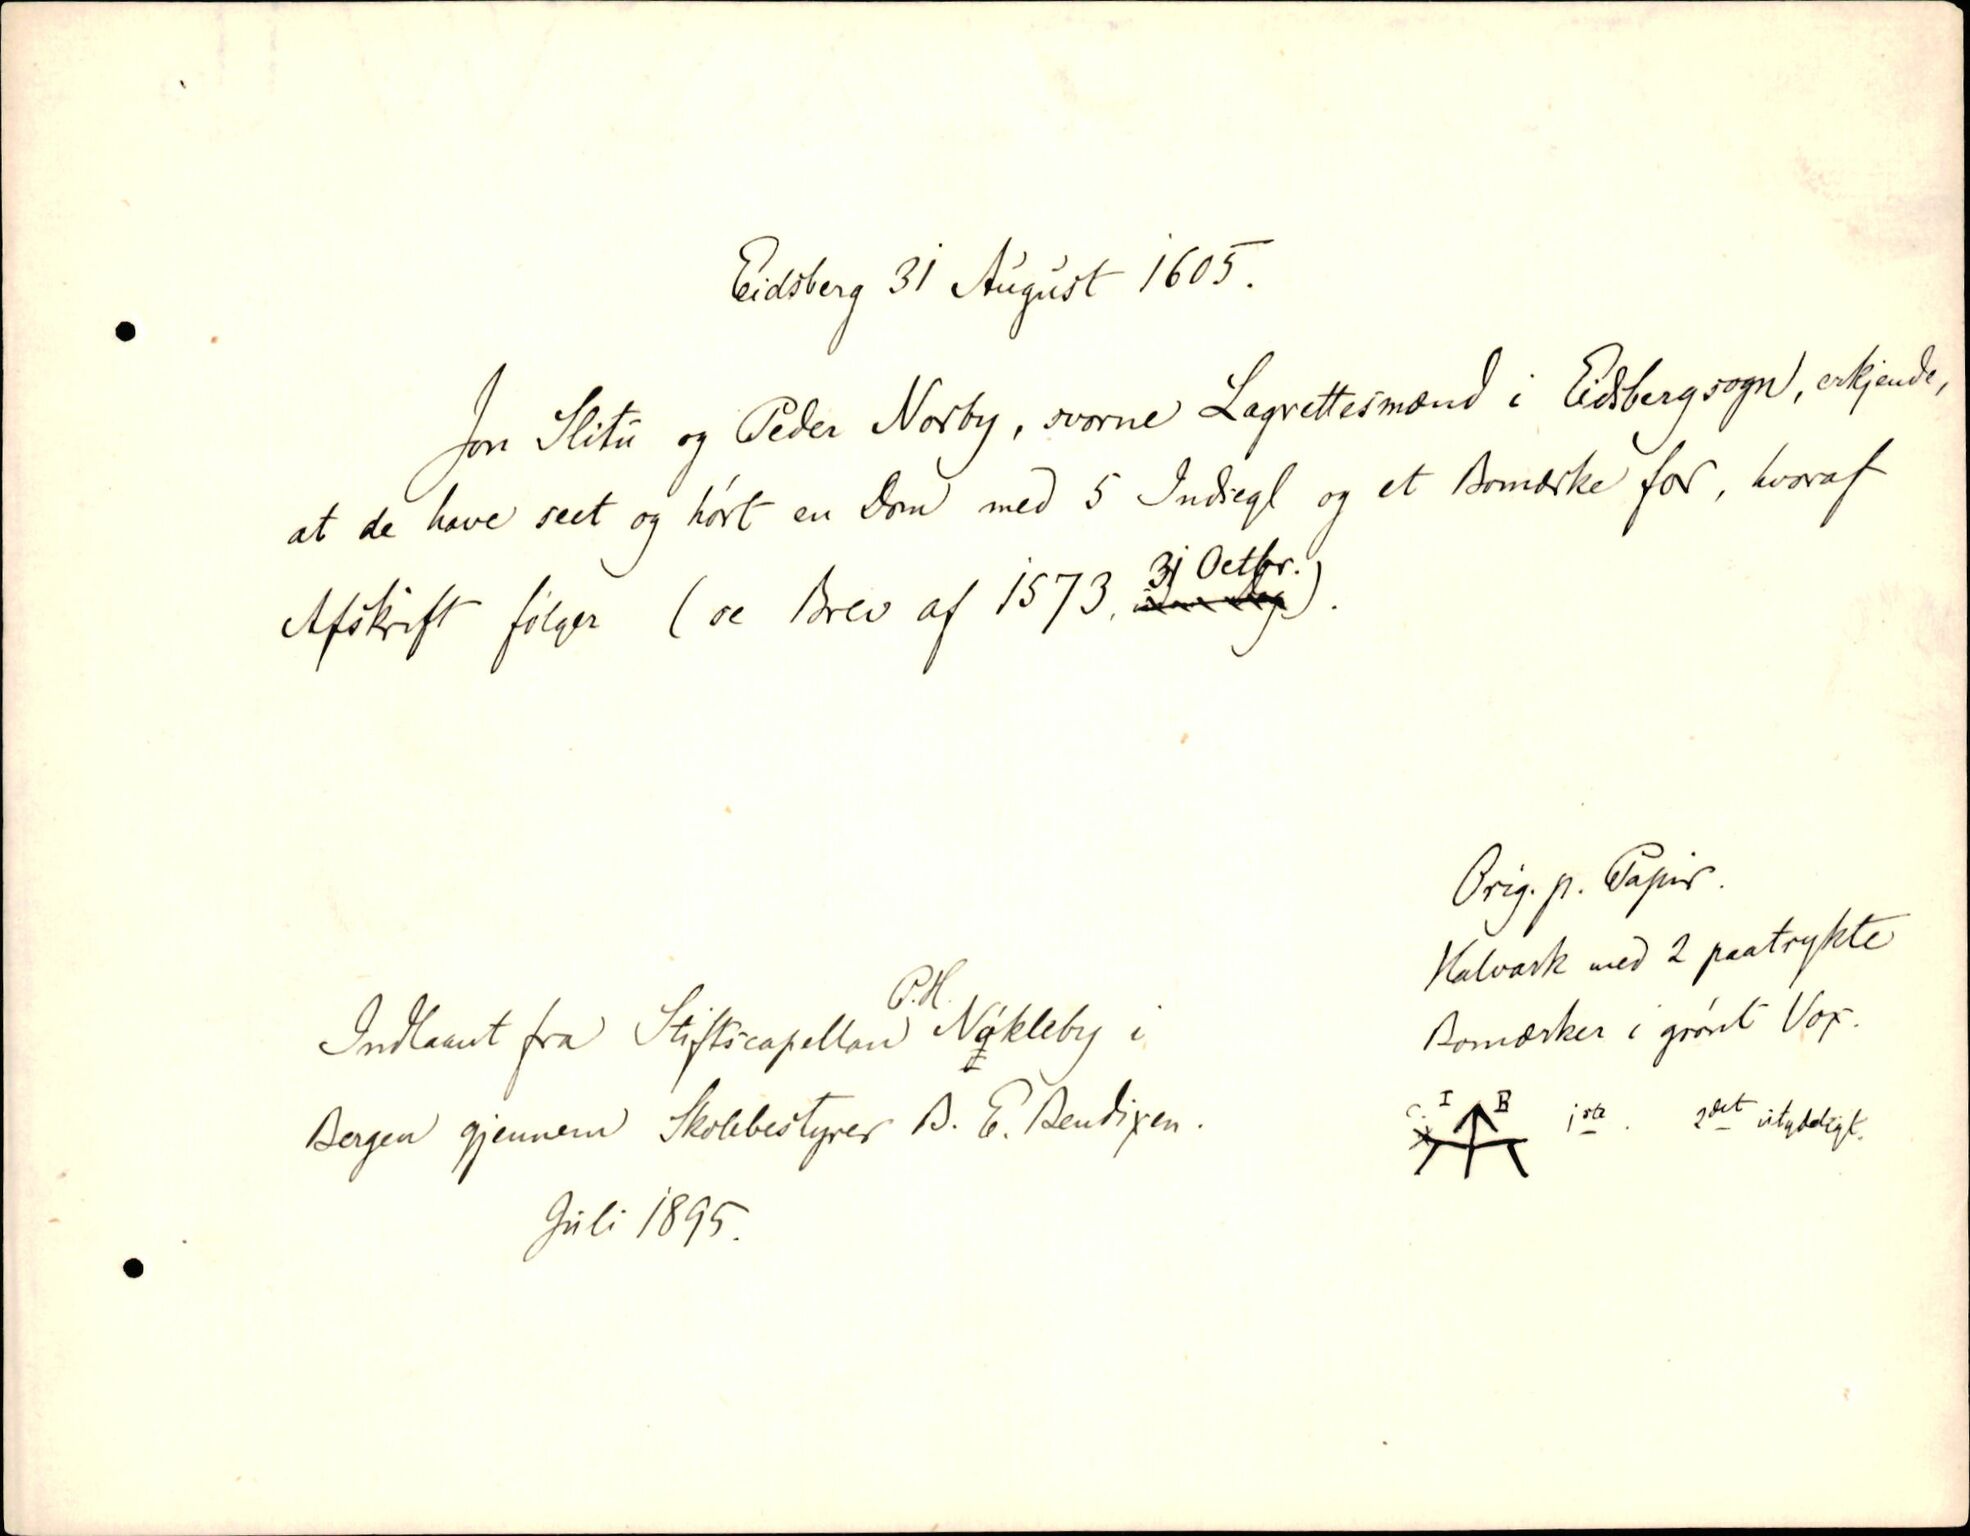 Eidsberg 31 August 1605.
Jon Slitu og Peder Norby, svorne Lagrettesmænd i Eidsbergsogn, erkjende,
at de have seet og hört en Dom med 5 Indsegl og et Bomærke for, hvoraf
Afskrift følger (se Brev af 1573, 31 Octbr.).
Orig. p. Papir.
Halvark med 2 paatrykte
Bomærker i grönt Vox.
I B 1ste. 2det utydeligt.
Indlaant fra Stiftscapellan P.H. Nøkleby i
Bergen gjennem Skolebestyrer B. E. Bendixen.
Juli 1895.